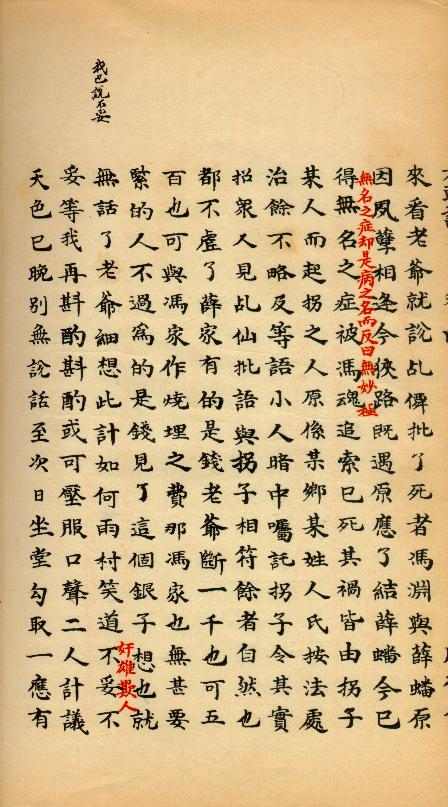 來看老爺就說乩僊批了死者馮淵與薛蟠原
因夙孽相逢今俠路既遇原應了結薛蟠今已
得無名之症被馮魂追索已死其禍皆由拐子
無名之症却是病之名而反曰無妙極
某人而起拐之人原係某鄉某姓人氏按法處
治餘不略及等語小人暗中囑託拐子令其實
招衆人見乩仙批語與拐子相符餘者自然也
都不虛了薛家有的是錢老爺斷一千也可五
百也可與馮家作燒埋之費那馮家也無甚要
緊的人不過爲的是錢見了這個銀子想也就
奸雄欺人
無話了老爺細想此計如何雨村笑道不妥不
我已說不妥
妥等我再斟酌斟酌或可壓服口聲二人計議
天色已晚別無說話至次日坐堂勾取一應有